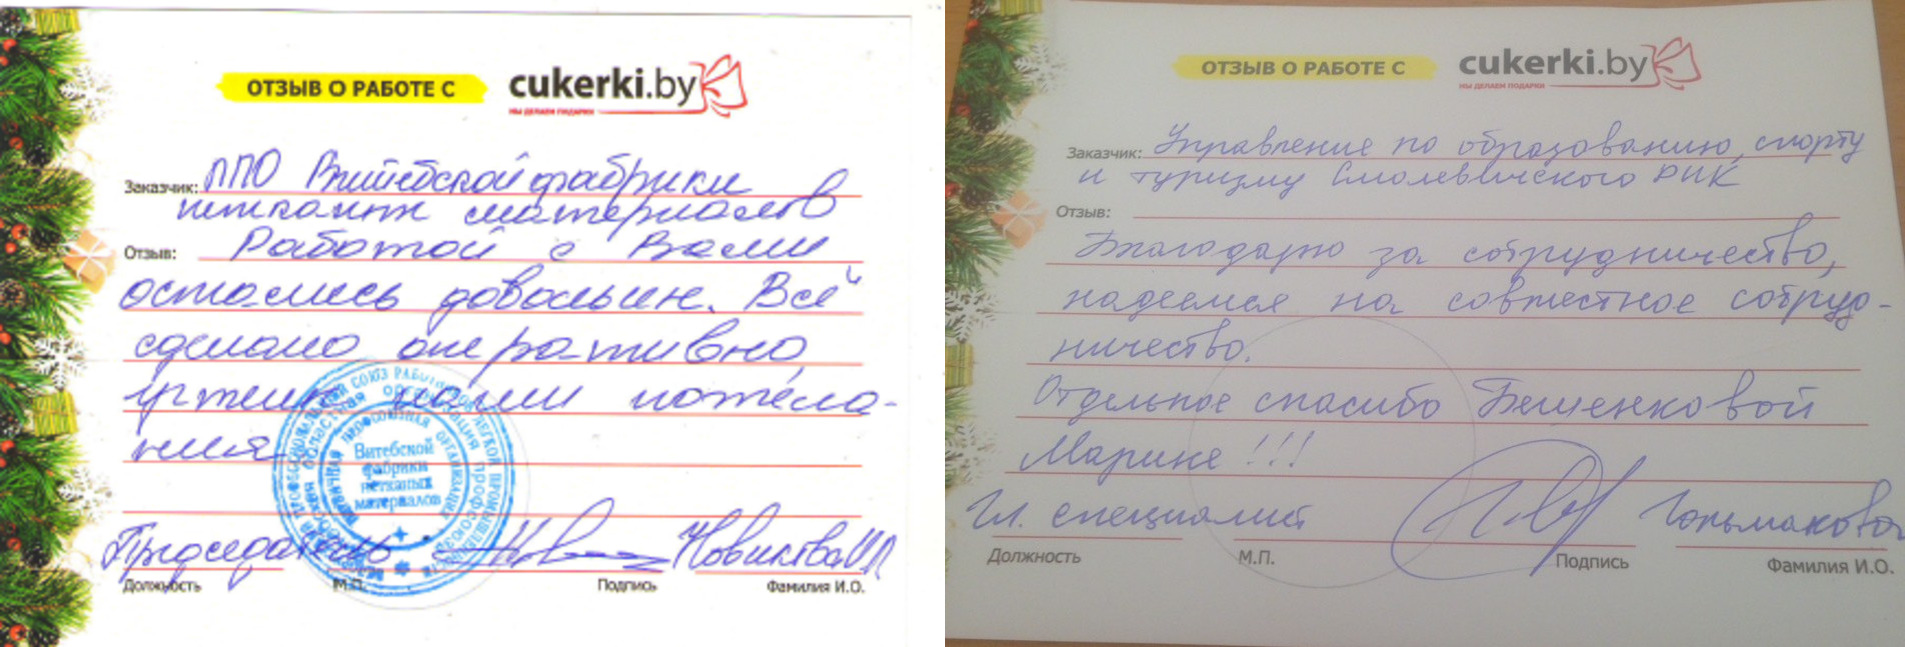 ОТЗЫВ О РАБОТЕ С
cukerki.by
МЫ ДЕЛАЕМ ПОДАРКИ
Заказчик: ППО Витебской фабрики
нетканых материалов
Отзыв: Работой с Вами
остались довольны. Всё
сделано оперативно,
учтены наши пожела-
ния.
Витебской
фабрики
нетканых
материалов
Председатель Новикова
Должность М.П. Подпись Фамилия И.О.
ОТЗЫВ О РАБОТЕ С
cukerki.by
МЫ ДЕЛАЕМ ПОДАРКИ
Заказчик: Управление по образованию, спорту
и туризму Смолевичского РИК
Отзыв:
Благодарю за сотрудничество,
надеемся на совместное сотруд-
ничество.
Отдельное спасибо Бешенковой
Марине!!!
Гл. специалист
Должность М.П. Подпись Фамилия И.О.